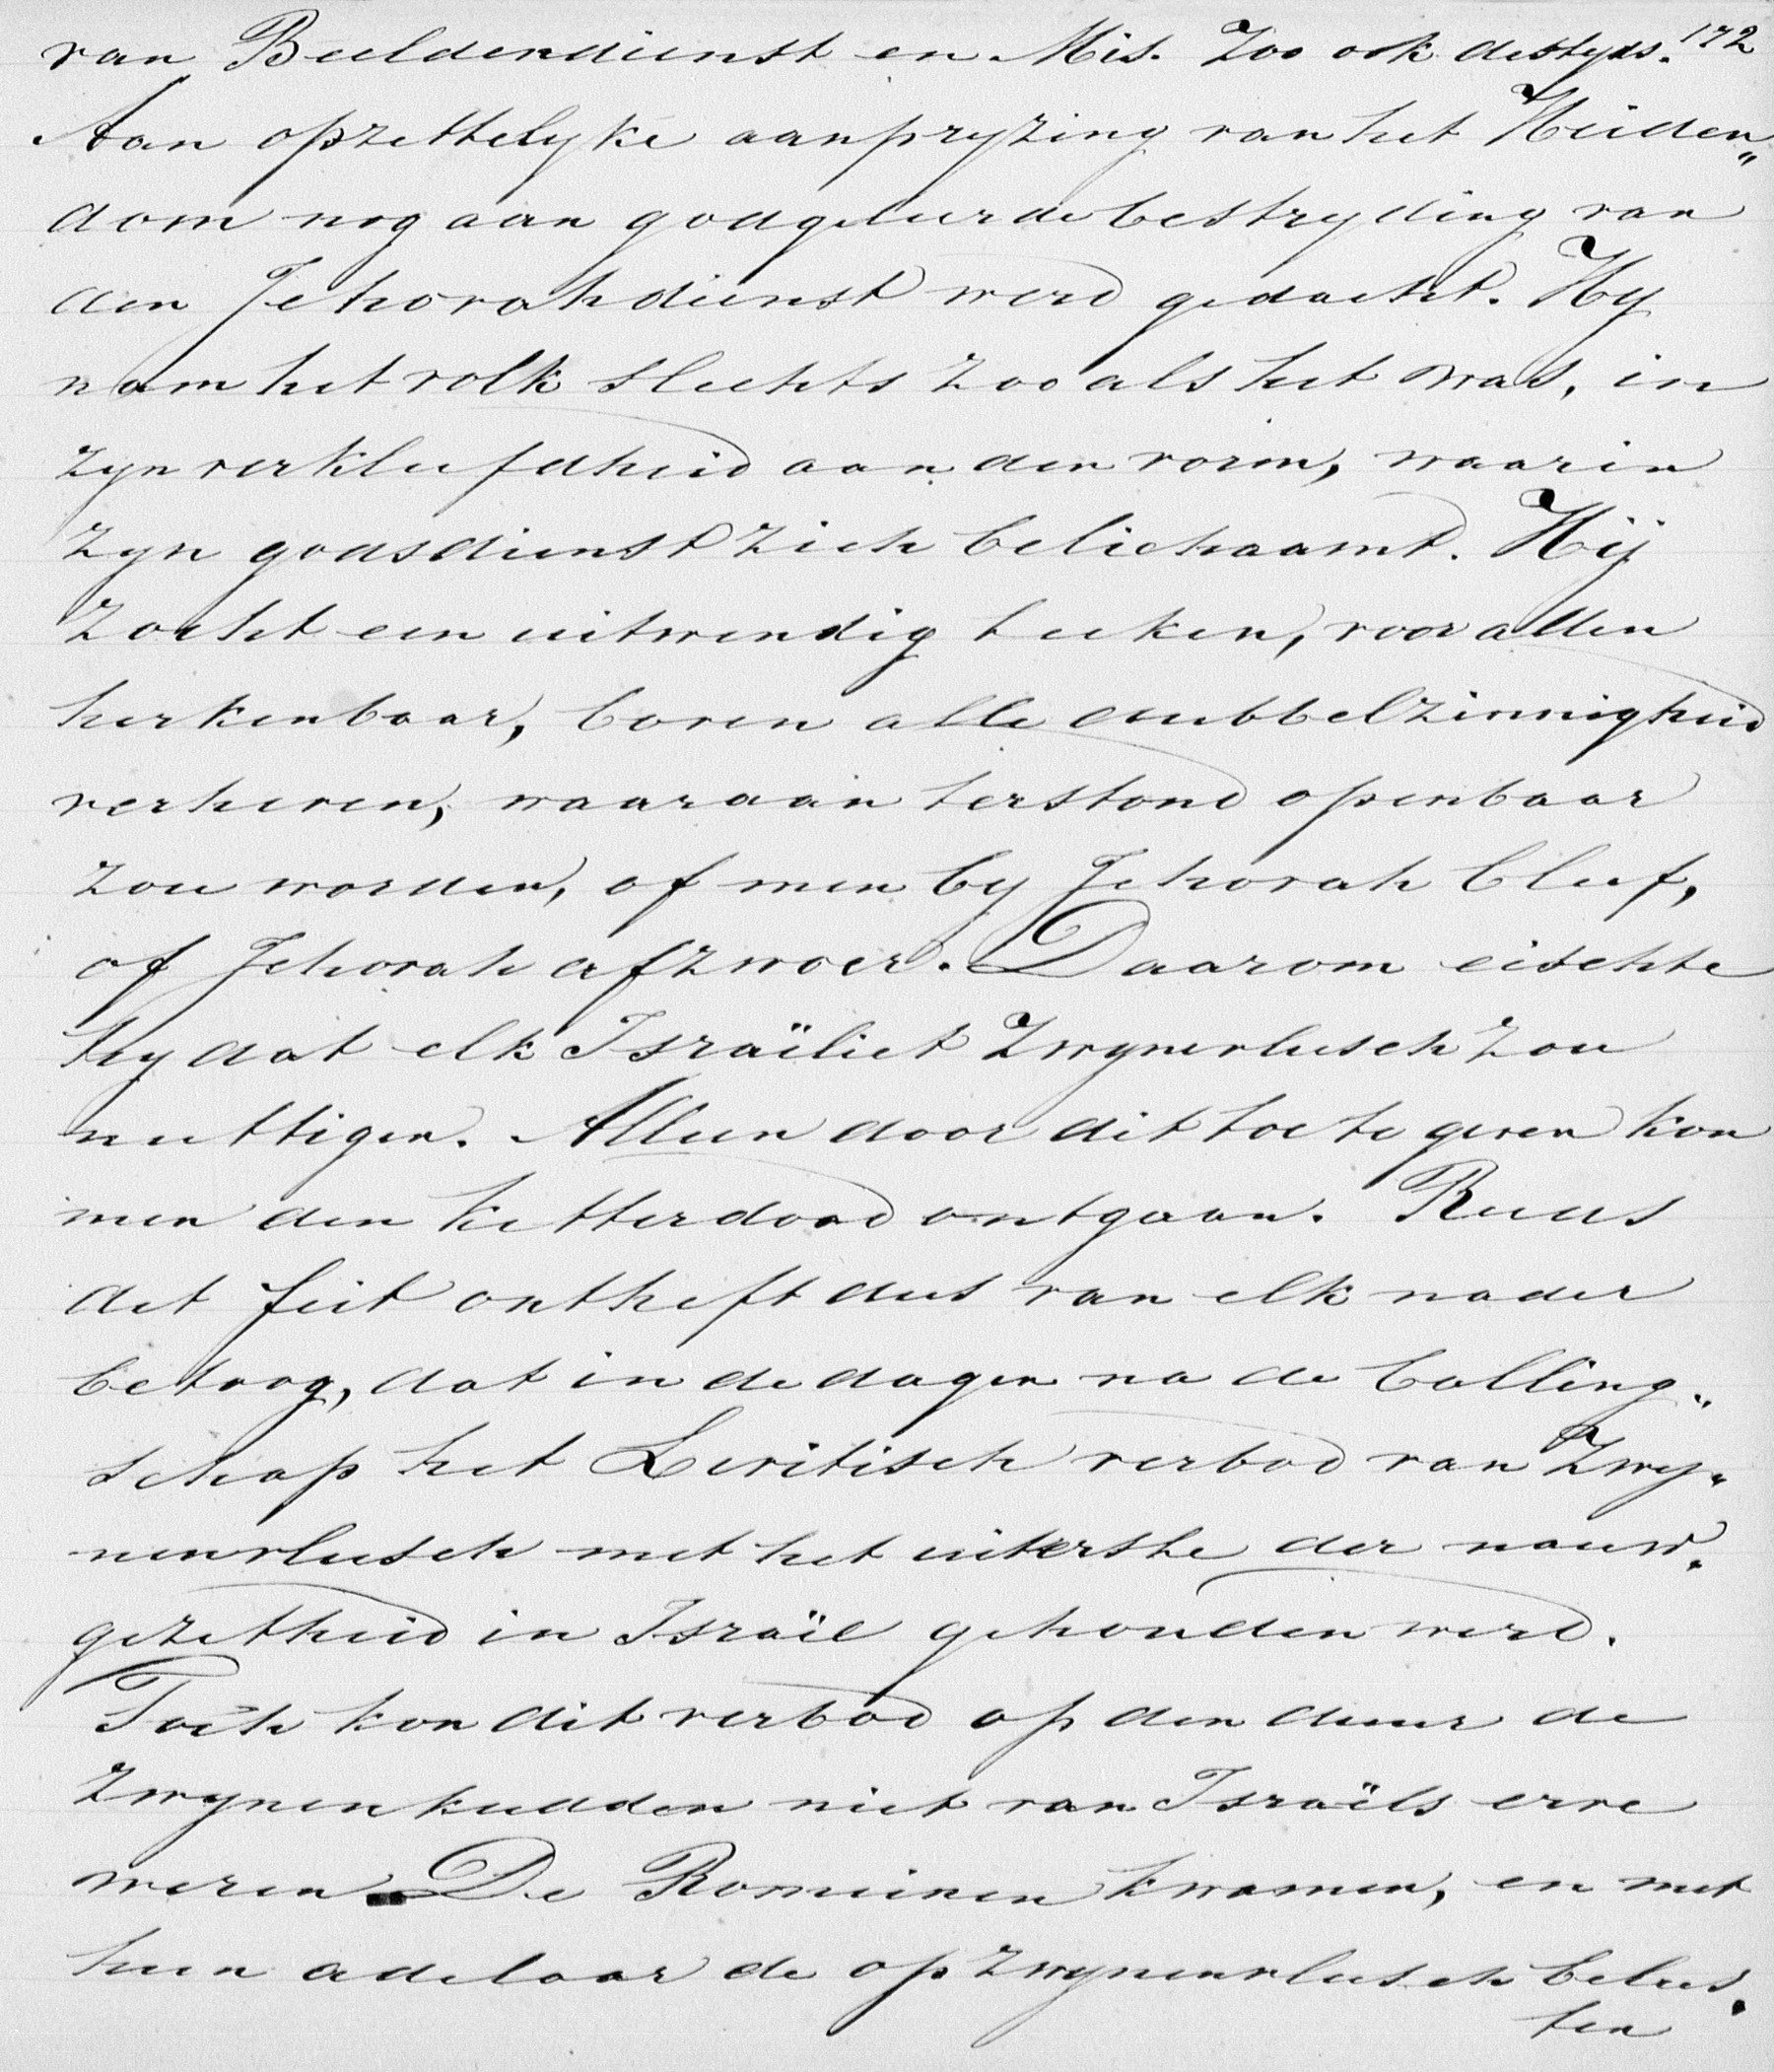 van Beeldendienst en Mis. Zoo ook destyds. 172
Aan opzettelyke aanpryzing van het Heiden„
dom nog aan godgeleerde bestryding van
den Jehovahdienst werd gedacht. Hy
nam het volk slechts zooals het was, in
zyn verkleefdheid aan den vorm, waarin
zyn godsdienst zich belichaamt. Hij
zocht een uitwendig teeken, voor allen
herkenbaar, boven alle dubbelzinnigheid
verheven, waaraan terstond openbaar
zou worden, of men by Jehovah bleef,
of Jehovah afzwoer. Daarom eischte
hy dat elk Israëliet Zwynenvleesch zou
nuttigen. Alleen door dit toe te geven kon
men den ketterdood ontgaan. Reeds
dit feit ontheft dus van elk nader
betoog, dat in de dagen na de balling„
schap het Levitisch verbod van Zwy„
nenvleesch met het uiterste der nauw„
gezetheid in Israël gehouden werd.
Toch kon dit verbod op den duur de
Zwynenkudden niet van Israëls erve
weren. De Romeinen kwamen, en met
hun adelaar de op zwynenvleesch belus„
ten